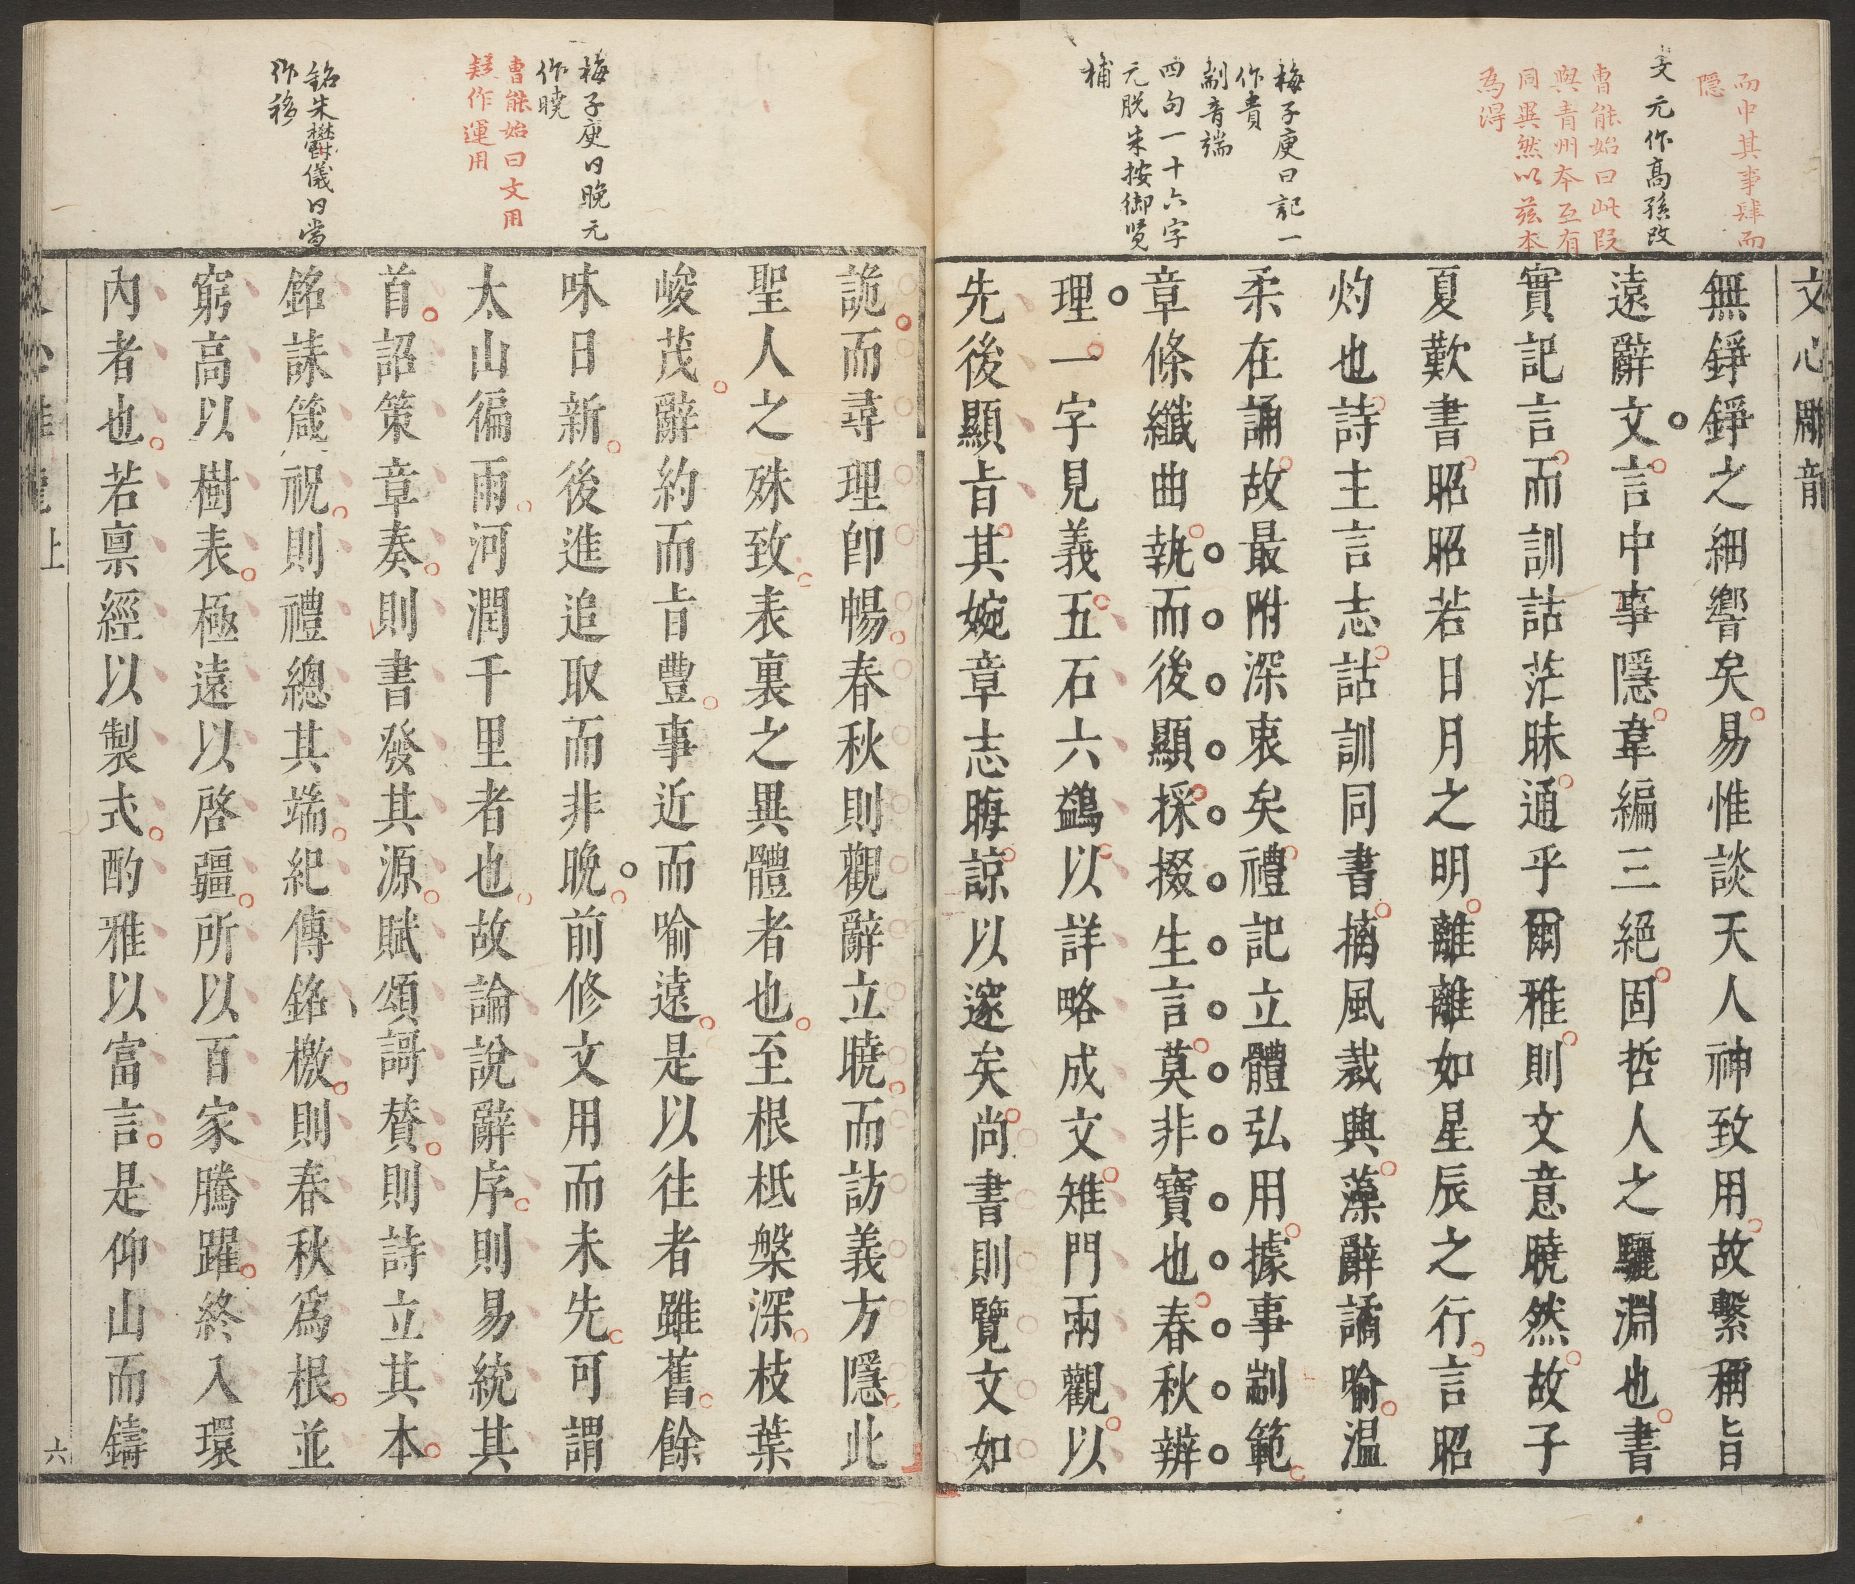 文心雕龍
而中其事肆而
隱
文元作高孫改
曹能始曰此段
與青州本互有
同異然以茲本
為得
無錚錚之細響矣易惟談天人神致用故繫稱旨
遠辭文言中事隱韋編三絕固哲人之驪淵也書
實記言而訓詁茫昧通乎爾雅則文意曉然故子
夏歎書昭昭若日月之明離離如星辰之行言昭
灼也詩主言志詁訓同書摛風裁興藻辭譎喻溫
梅子庚曰記一
作貴
剬音端
四句一十六字
元脫朱按御覽
補
柔在誦故最附深衷矣禮記立體弘用據事剬範
章條纖曲執而後顯採掇生言莫非寶也春秋辨
理一字見義五石六鷁以詳略成文雉門兩觀以
先後顯旨其婉章志晦諒以邃矣尚書則覽文如
詭而尋理即暢春秋則觀辭立曉而訪義方隱此
聖人之殊致表裏之異體者也至根柢槃深枝葉
峻茂辭約而旨豐事近而喻遠是以往者雖舊餘
梅子庚曰晚元
作曉
曹能始曰文用
疑作運用
味日新後進追取而非晚前修文用而未先可謂
太山徧雨河潤千里者也故論說辭序則易統其
首詔策章奏則書發其源賦頌謌贊則詩立其本
銘朱鬱儀曰當
作移
銘誄箴祝則禮總其端紀傳銘檄則春秋為根並
窮高以樹表極遠以啓疆所以百家騰躍終入環
內者也若禀經以製式酌雅以富言是仰山而鑄
上
六